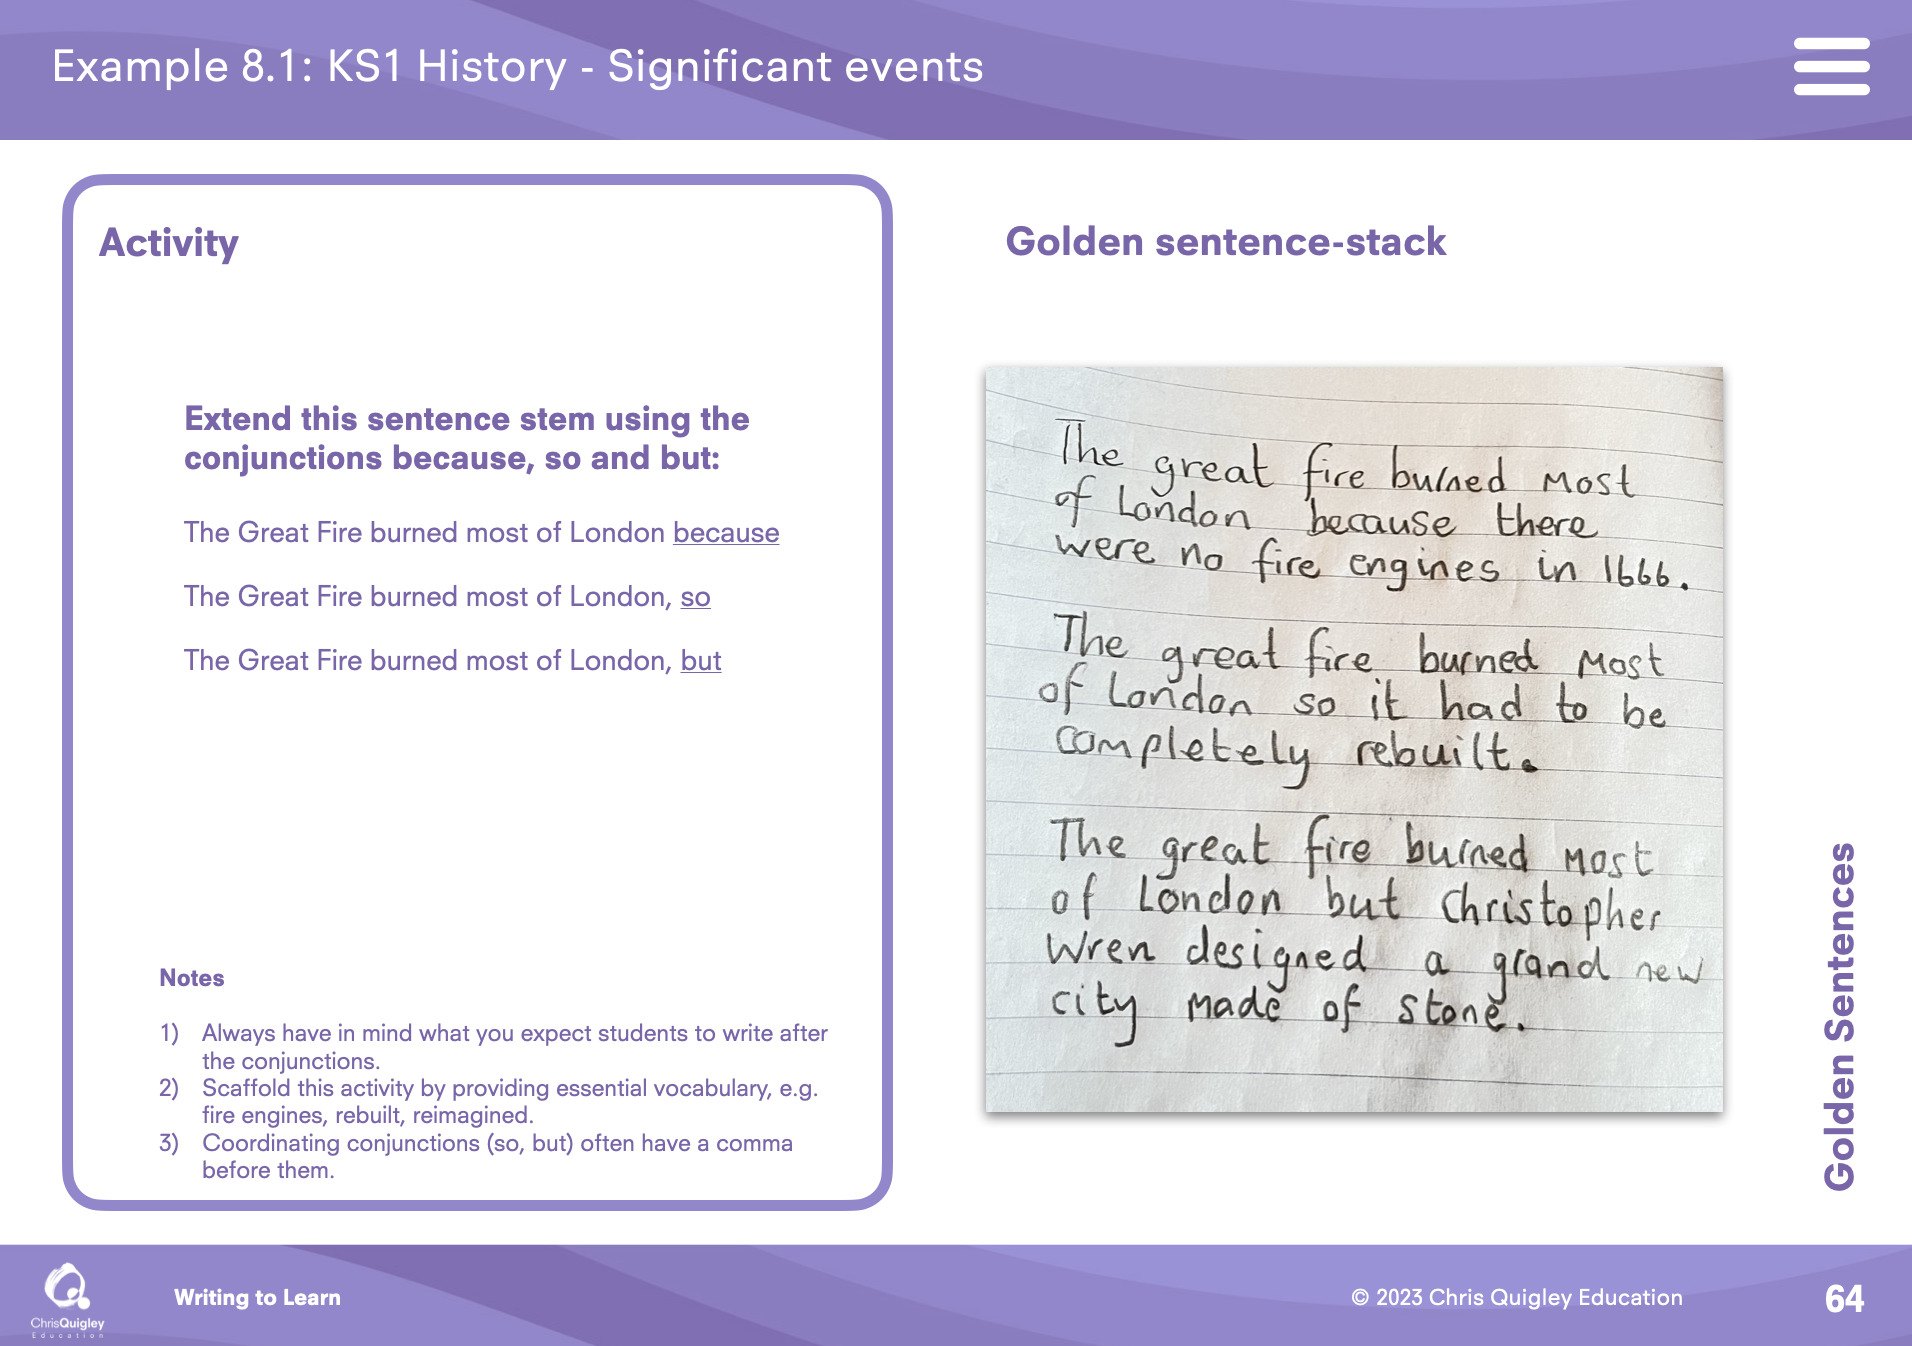 Example 8.1: KS1 History - Significant events
Activity
Extend this sentence stem using the
conjunctions because, so and but:
The Great Fire burned most of London because
The Great Fire burned most of London, so
The Great Fire burned most of London, but
Notes
1) Always have in mind what you expect students to write after
the conjunctions.
2) Scaffold this activity by providing essential vocabulary, e.g.
fire engines, rebuilt, reimagined.
3) Coordinating conjunctions (so, but) often have a comma
before them.
Golden sentence-stack
The great fire burned most
of London because there
were no fire engines in 1666.
The great fire burned most
of London so it had to be
completely rebuilt.
The great fire burned most
of London but Christopher
Wren designed a grand new
city made of stone.
Golden Sentences
ChrisQuigley
Education
Writing to Learn
© 2023 Chris Quigley Education
64